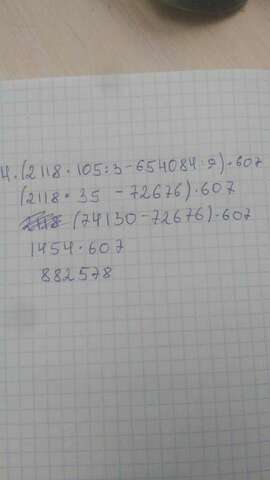 4.(2118·105:3-654084:9)·607
(2118·35 -72676)·607
(74130-72676)·607
1454·607
882578